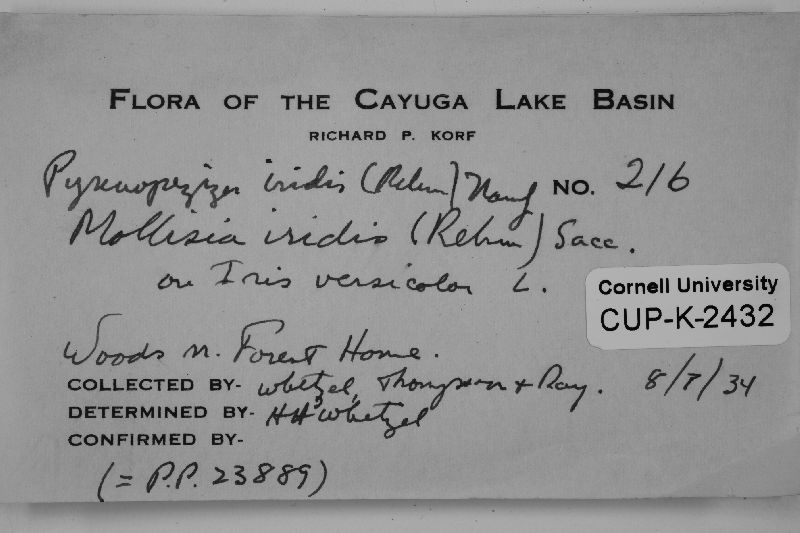 FLORA OF THE CAYUGA LAKE BASIN
RICHARD P. KORF
Pyrenopeziza iridis (Rehm) Nannf NO. 216
Mollisia iridis (Rehm) Sacc.
on Iris versicolor L.
Cornell University
CUP-K-2432
Woods n. Forest Home.
COLLECTED BY- Whetzel, Thompson + Ray. 8/7/34
DETERMINED BY- HH Whetzel
CONFIRMED BY-
(= P.P. 23889)